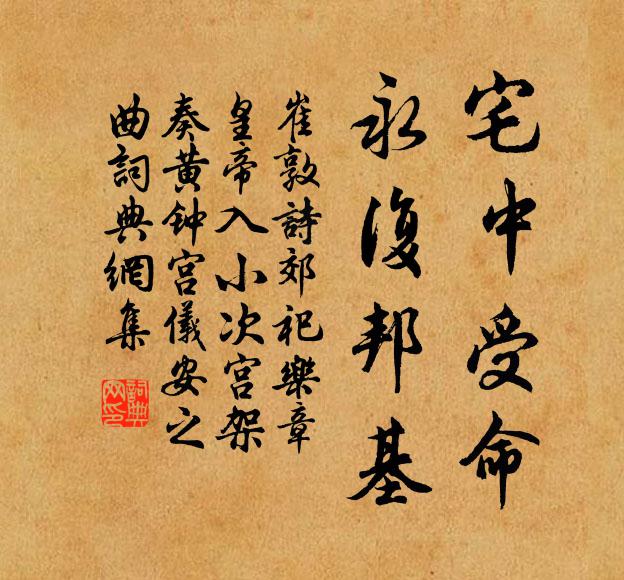 宅中受命
永復邦基
崔敦詩郊祀樂章
皇帝入小次宮架
奏黄钟宫儀安之
曲詞典網集
詞典网印